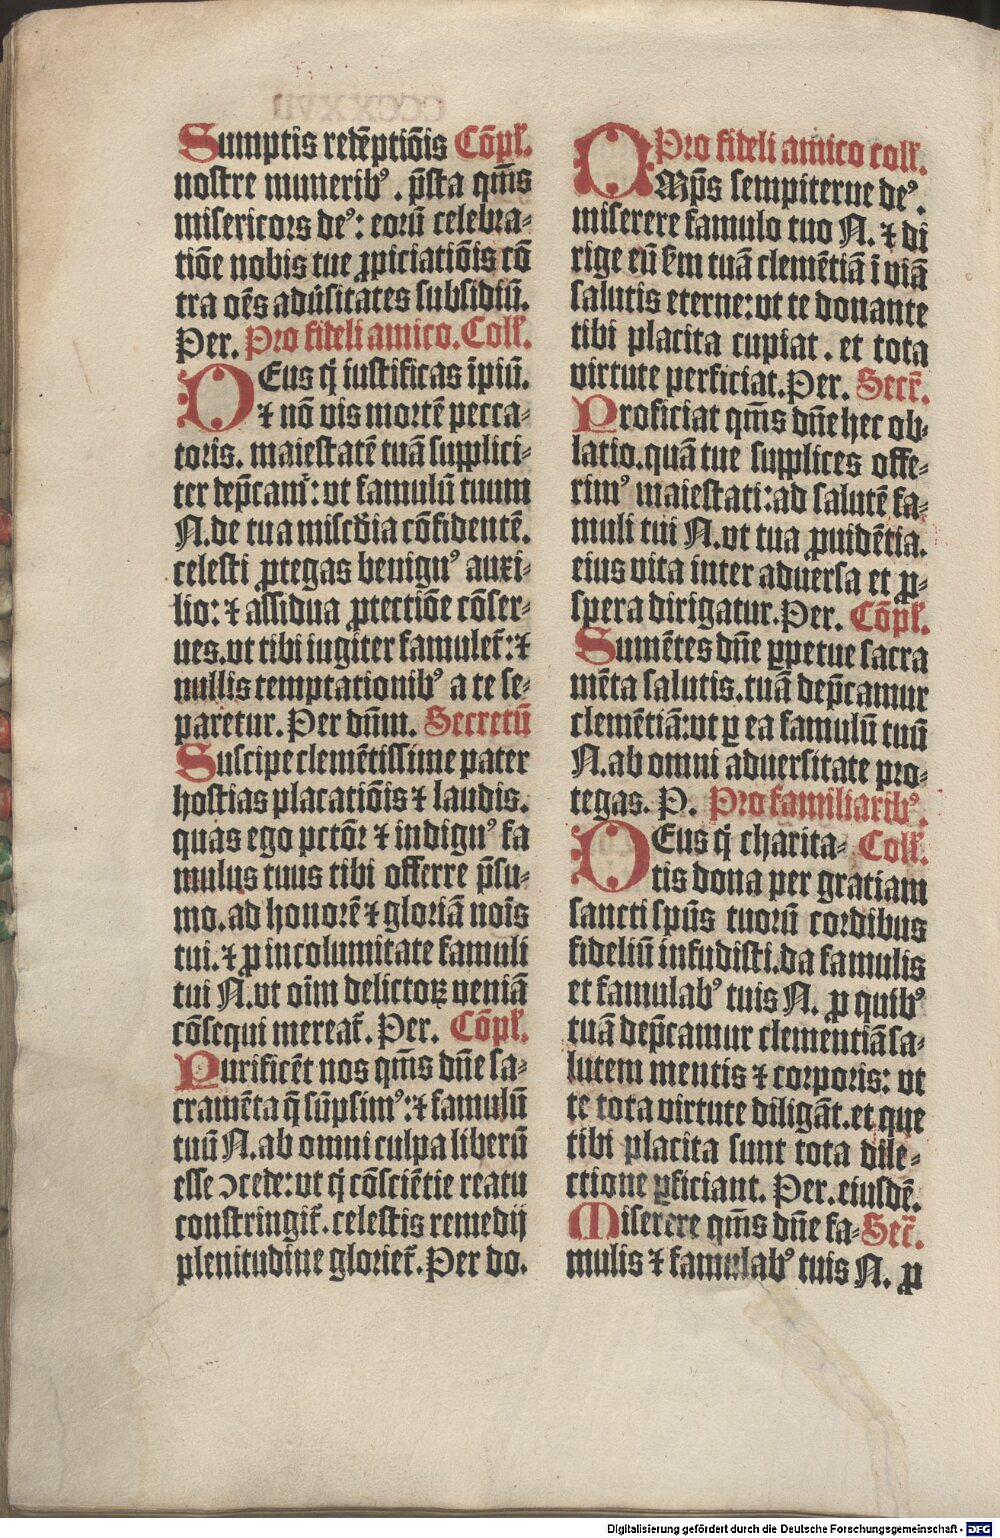 Sumptis redēptiōis Cōpl'.
nostre munerib⁹. p̄sta qm̄s
misericors de⁹: eorū celebra-
tiōe nobis tue ꝓpiciatiōis cō
tra oēs adūsitates subsidiū.
Per. Pro fideli amico. Coll'.
DEus q̇ iustificas īpiū.
⁊ nō vis mortē pecca-
toris. maiestatē tuā supplici-
ter dep̄cam̄: vt famulū tuum
N. de tua misc̄dia cōfidentē.
celesti ꝓtegas benign⁹ auxi-
lio: ⁊ assidua ꝓtectiōe cōser-
ues. vt tibi iugiter famulet̄: ⁊
nullis temptationib⁹ a te se-
paretur. Per dn̄m. Secretū
Suscipe clemētissime pater
hostias placatiōis ⁊ laudis.
quas ego pctōꝛ ⁊ indign⁹ fa
mulus tuus tibi offerre p̄su-
mo. ad honorē ⁊ gloriā nois̄
tui. ⁊ ꝓ incolumitate famuli
tui N. vt oīm delictoꝝ veniā
cōsequi mereat̄. Per. Cōpl'.
Purificēt nos qm̄s dn̄e sa-
cramēta q̄ sūpsim⁹: ⁊ famulū
tuū N. ab omni culpa liberū
esse ↄcede: vt q̇ cōsciētie reatu
constringit̄. celestis remedij
plenitudine gloriet̄. Per do.
Pro fideli amico coll'.
OMp̄s sempiterne de⁹.
miserere famulo tuo N. ⁊ di
rige eū s̄m tuā clemētiā ī viā
salutis eterne: vt te donante
tibi placita cupiat. et tota
virtute perficiat. Per. Secr̄.
Proficiat qm̄s dn̄e hec ob-
latio. quā tue supplices offe-
rim⁹ maiestati: ad salutē fa-
muli tui N. vt tua ꝓuidētia.
eius vita inter aduersa et ꝓ-
spera dirigatur. Per. Cōpl'.
Sumētes dn̄e ꝑpetue sacra
mēta salutis. tuā dep̄camur
clemētiā: vt ꝑ ea famulū tuū
N. ab omni aduersitate pro-
tegas. P. Pro familiarib⁹.
DEus q̇ charita- Coll'.
tis dona per gratiam
sancti spūs tuorū cordibus
fideliū infudisti. da famulis
et famulab⁹ tuis N. ꝓ quib⁹
tuā dep̄camur clementiā sa-
lutem mentis ⁊ corporis: vt
te tota virtute diligāt. et que
tibi placita sunt tota dile-
ctione ꝑficiant. Per. eiusdē.
Miserere qm̄s dn̄e fa- Secr̄.
mulis ⁊ famulab⁹ tuis N. ꝓ
Digitalisierung gefördert durch die Deutsche Forschungsgemeinschaft - DFG